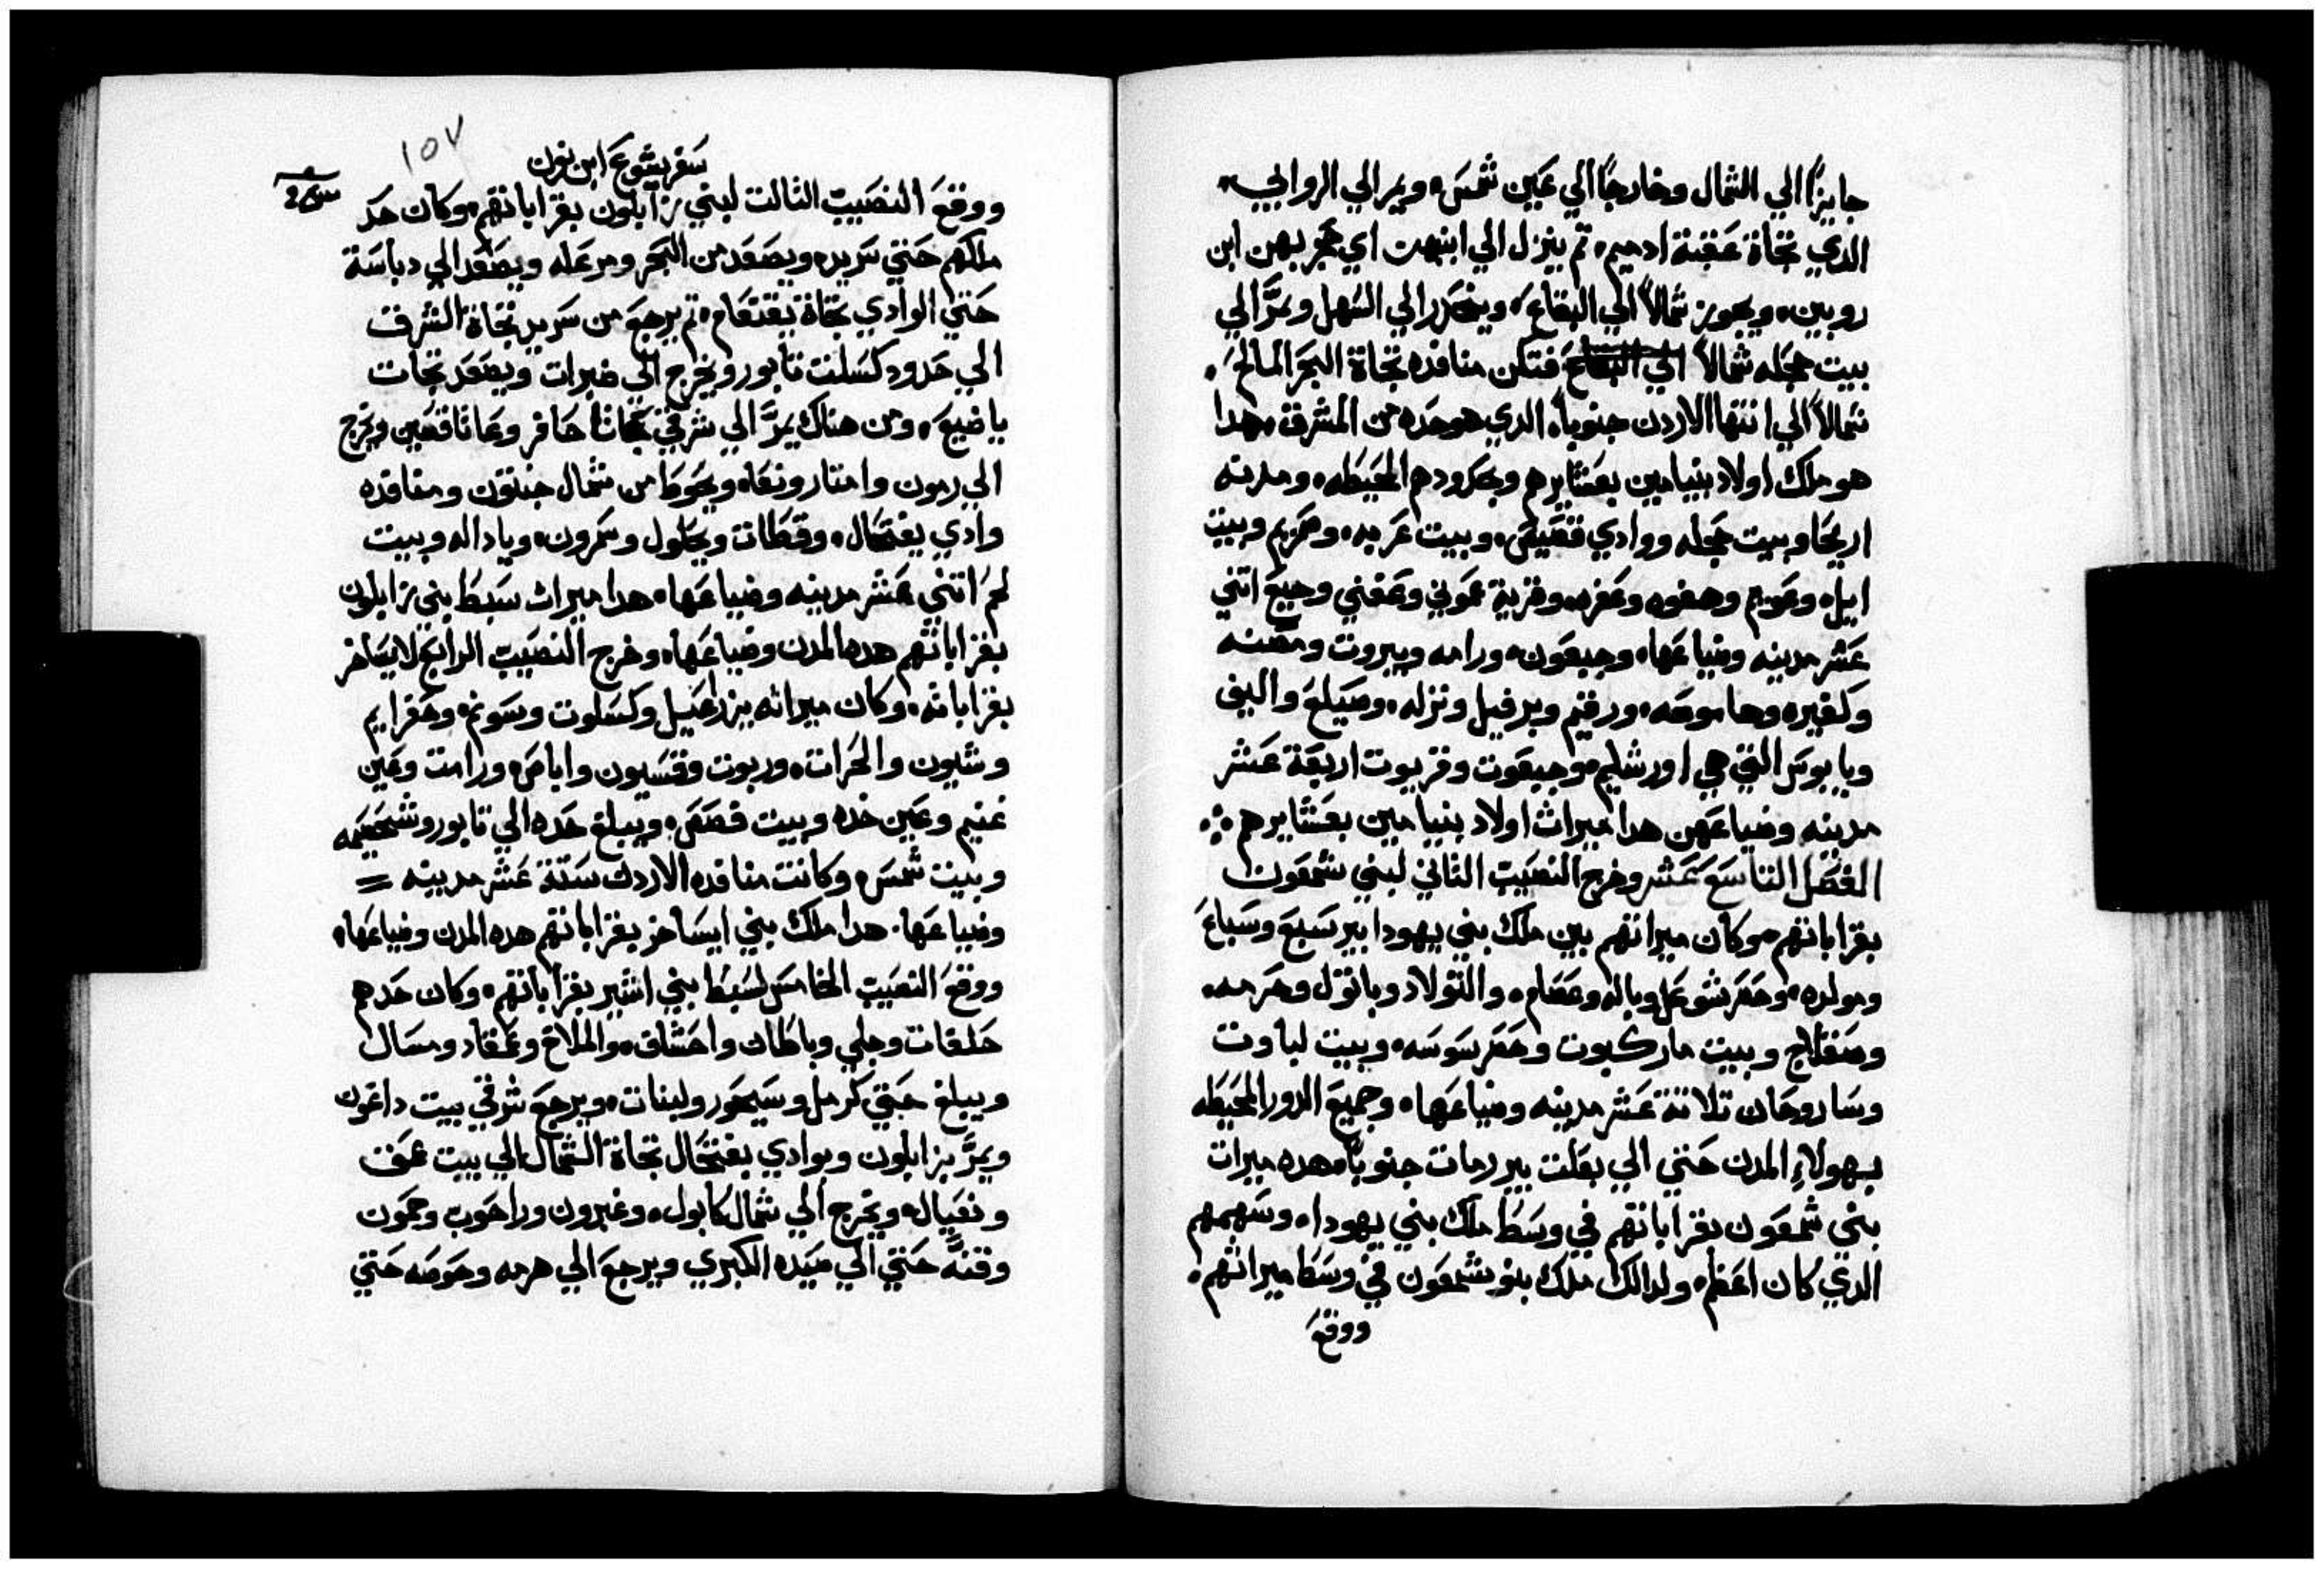 جايزاً الي الشمال وخارجاً الي عين شمس ويمر الي الروابي
الدي تجاة عقبة ادميم تم ينزل الي ابنبهت اي حجر بهن ابن
روبين ويجوز شمالاً الي البقاع وينحدر الي السهل ويمرَّ الي
بيت حجله شمالاً فتكن منافده تجاة البحر المالح
شمالاً الي انتها الاردن جنوباً الدي هو حده من المشرق هدا
هو ملك اولاد بنيامين بعشايرهم وبحدودهم المحيطه ومدنه
اريحا وبيت حجله ووادي قصيص وبيت عربه وصريم وبيت
ايل وعويم وهفره وعفره وقرية عموني وعفني وجبع اتني
عشر مدينه وضياعها وجبعون ورامه وبيروت ومصنه
وكفيره وهاموصه ورقيم ويرفيل ونزله وصيلع والبغي
ويابوس التي هي اورشليم وجبعوت وقريوت اربعة عشر
مدينه وضياعهن هدا ميرات اولاد بنيامين بعشايرهم
الفصل التاسع عشر وخرج النصيب التاني لبني شمعون
بقراباتهم وكان ميراتهم بين ملك بني يهودا بير سبع وسباع
ومولده وحصر شوعل وباله وعصام والتولاد وباتول وحرمه
وصقلاج وبيت ماركبوت وحصر سوسه وبيت لباوت
وساروحان تلاتة عشر مدينه وضياعها وجميع الدور المحيطه
بهولاء المدن حتي الي بعلت بير رمات جنوباً هده ميرات
بني شمعون بقراباتهم في وسط ملك بني يهودا وسهمهم
الدي كان اعظم ولدالك ملك بنو شمعون في وسط ميراتهم
ووقع
١٥٧
سفر يشوع ابن نون
ووقع النصيب التالت لبني زابلون بقراباتهم وكان حد
ملكهم حتي سريد ويصعد من البحر ومرعله ويصعد الي دباسة
حتي الوادي تجاة يقنعام تم يرجع من سريد تجاة الشرق
الي حدود كسلت تابور ويخرج الي ضبرات ويصعد تجات
يافيع ومن هناك يمرَّ الي شرقي جاتا حافر وعاتا قصين ويخرج
الي رمون وامتار ونعاه ويحوط من شمال حنتون ومنافده
وادي يفتحال وقطات ويحلول وسمرون ويادالا وبيت
لحم اتني عشر مدينه وضياعها هدا ميرات سبط بني زابلون
بقراباتهم هده المدن وضياعها وخرج النصيب الرابع لايساخر
بقراباته وكان ميراته يزراعيل وكسلوت وسونم وحفرايم
وشيون والحرات وربوت وقسيون واباص ورامت وعين
غنيم وعين خده وبيت فصص ويبلغ حده الي تابور وشحصيمه
وبيت شمس وكانت منافده الاردن ستة عشر مدينه =
وضياعها هدا ملك بني ايساخر بقراباتهم هده المدن وضياعها
ووقع النصيب الخامس لسبط بني اشير بقراباتهم وكان حدهم
حلقات وحلي وباطان واحشاف والملاخ وعمعاد ومسال
ويبلغ حتي كرمل وسيحور ولبنات ويرجع شرقي بيت داغون
ويمرَّ بزابلون وبوادي يفتحال تجاة الشمال الي بيت عمق
ونعيال ويخرج الي شمال كابول وعبرون وراحوب وحمون
وقنةَ حتي الي صيده الكبري ويرجع الي هرمه وحوصه حتي